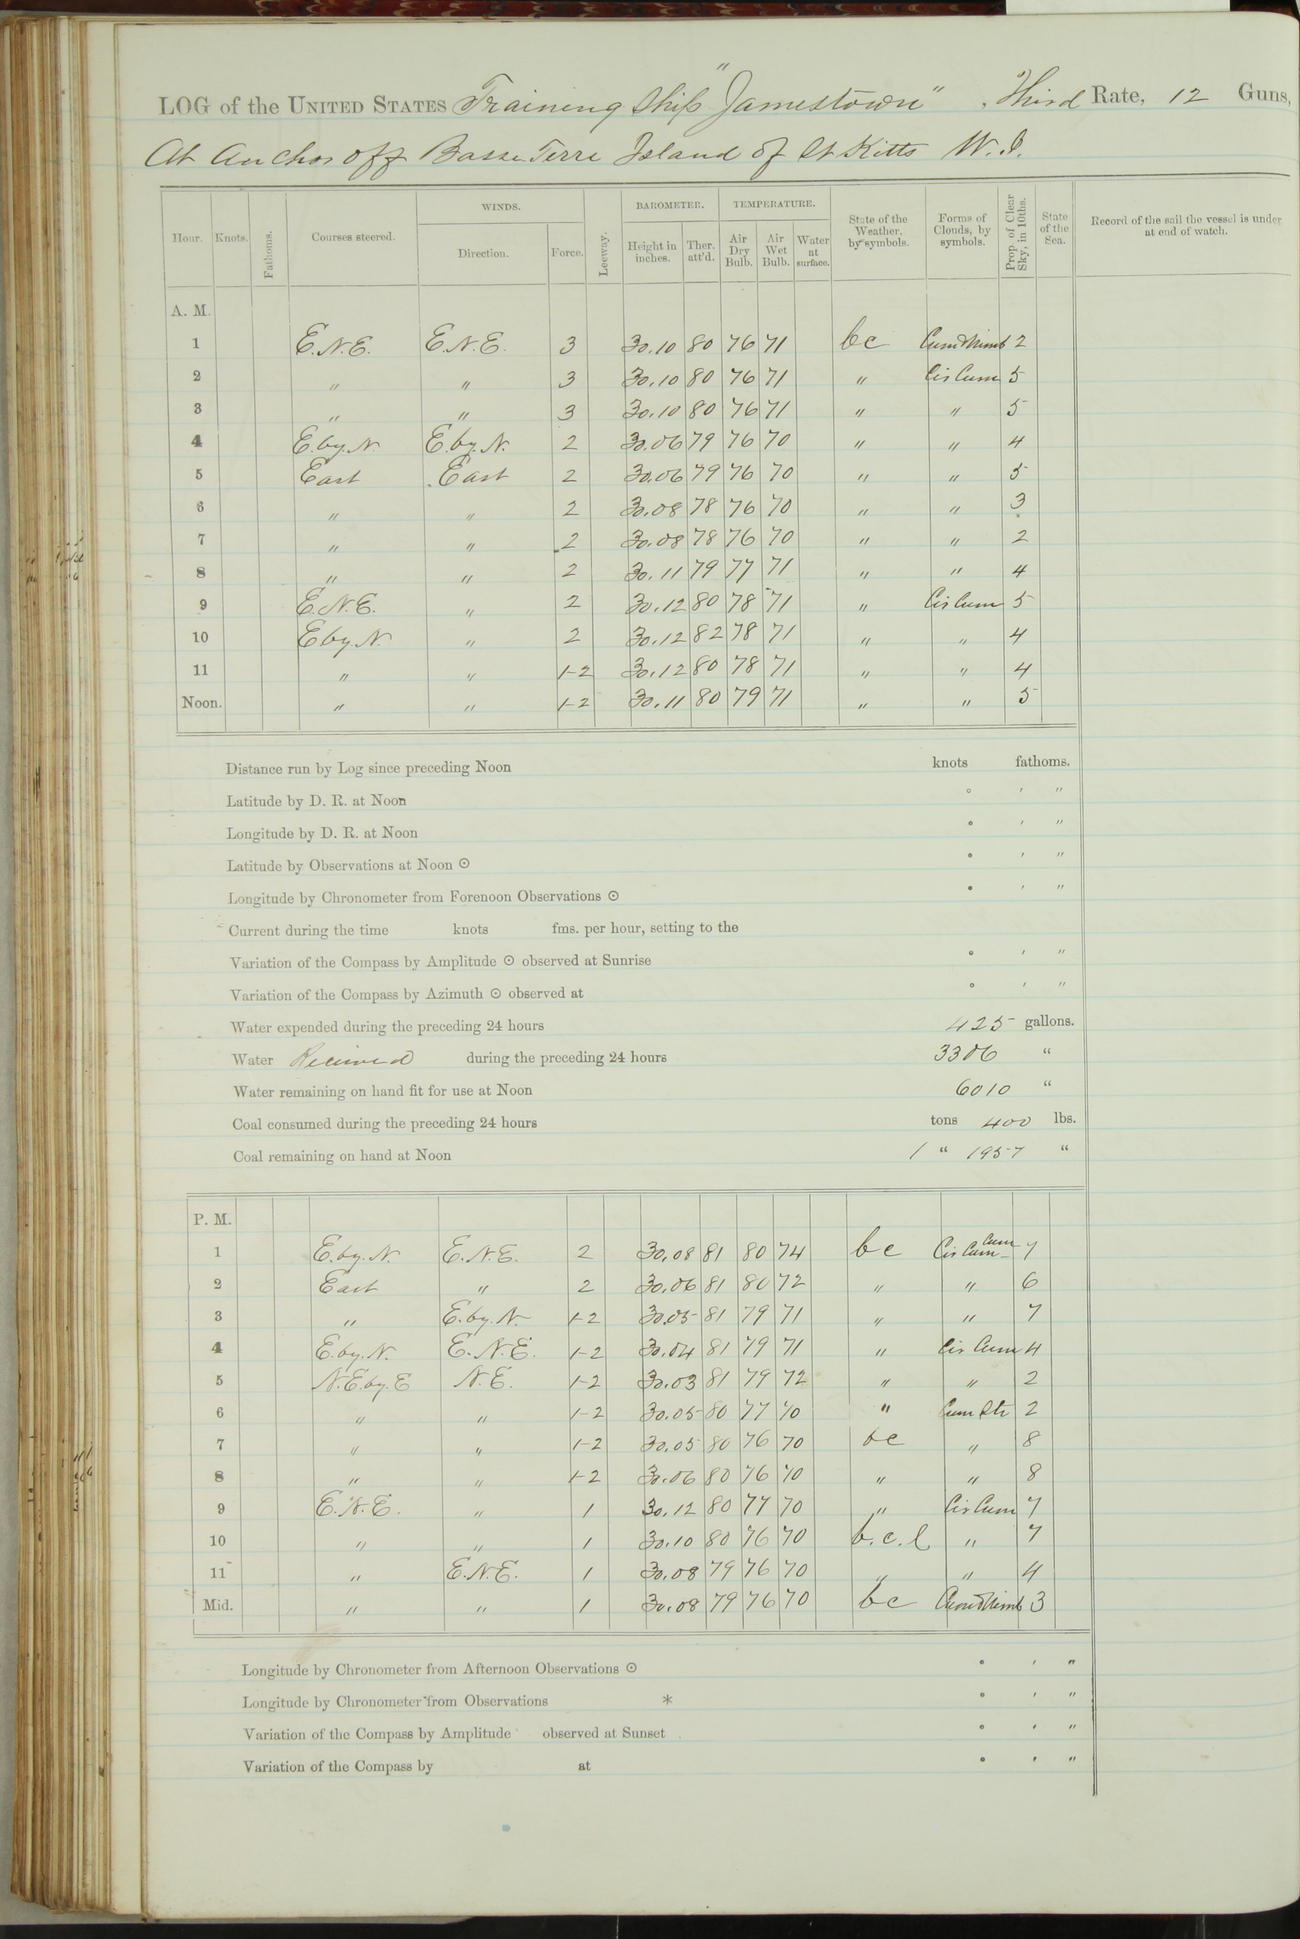 LOG of the UNITED STATES Training Ship "Jamestown" , Third Rate, 12 Guns,
At Anchor off Basse Terre Island of St Kitts W. I.
Hour. Knots. Fathoms. Courses steered. WINDS. Direction. Force. Leeway. BAROMETER. Height in inches. Ther. att'd. TEMPERATURE. Air Dry Bulb. Air Wet Bulb. Water at surface. State of the Weather, by symbols. Forms of Clouds, by symbols. Prop. of Clear Sky, in 10ths. State of the Sea. Record of the sail the vessel is under at end of watch.
A. M.
1 E.N.E. E.N.E. 3 30.10 80 76 71 bc Cum & Nimb 2
2 " " 3 30.10 80 76 71 " Cir Cum 5
3 " " 3 30.10 80 76 71 " " 5
4 E.by.N. E.by.N. 2 30.06 79 76 70 " " 4
5 East East 2 30.06 79 76 70 " " 5
6 " " 2 30.08 78 76 70 " " 3
7 " " 2 30.08 78 76 70 " " 2
8 " " 2 30.11 79 77 71 " " 4
9 E.N.E. " 2 30.12 80 78 71 " Cir Cum 5
10 E by. N. " 2 30.12 82 78 71 " " 4
11 " " 1-2 30.12 80 78 71 " " 4
Noon. " " 1-2 30.11 80 79 71 " " 5
Distance run by Log since preceding Noon knots fathoms.
Latitude by D. R. at Noon ° ' "
Longitude by D. R. at Noon ° ' "
Latitude by Observations at Noon ⊙ ° ' "
Longitude by Chronometer from Forenoon Observations ⊙ ° ' "
Current during the time knots fms. per hour, setting to the
Variation of the Compass by Amplitude ⊙ observed at Sunrise ° ' "
Variation of the Compass by Azimuth ⊙ observed at ° ' "
Water expended during the preceding 24 hours 425 gallons.
Water Received during the preceding 24 hours 3306 "
Water remaining on hand fit for use at Noon 6010 "
Coal consumed during the preceding 24 hours tons 400 lbs.
Coal remaining on hand at Noon 1 " 1957 "
P. M.
1 E.by.N. E.N.E. 2 30.08 81 80 74 bc Cir Cum Cum 7
2 East " 2 30.06 81 80 72 " " 6
3 " E.by.N. 1-2 30.05 81 79 71 " " 7
4 E.by.N. E.N.E. 1-2 30.04 81 79 71 " Cir Cum 4
5 N.E.by.E N.E. 1-2 30.03 81 79 72 " " 2
6 " " 1-2 30.05 80 77 70 " Cum Str 2
7 " " 1-2 30.05 80 76 70 bc " 8
8 " " 1-2 30.06 80 76 70 " " 8
9 E.N.E. " 1 30.12 80 77 70 " Cir Cum 7
10 " " 1 30.10 80 76 70 b.c.l " 7
11 " E.N.E. 1 30.08 79 76 70 " " 4
Mid. " " 1 30.08 79 76 70 bc Cum & Nimb 3
Longitude by Chronometer from Afternoon Observations ⊙ ° ' "
Longitude by Chronometer from Observations * ° ' "
Variation of the Compass by Amplitude observed at Sunset ° ' "
Variation of the Compass by at ° ' "